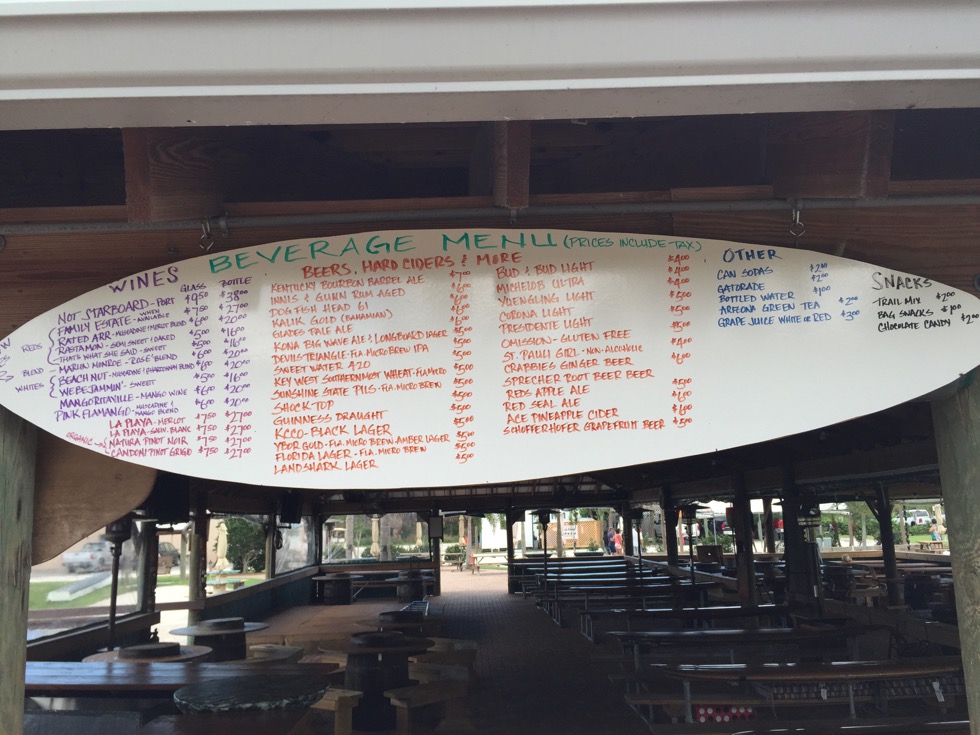 BEVERAGE MENU (PRICES INCLUDE TAX)
WINES
GLASS BOTTLE
NOT STARBOARD - PORT $9.50 $38.00
FAMILY ESTATE - WHEN AVAILABLE $7.50 $27.00
REDS
RATED ARR - MUSCADINE MERLOT BLEND $6.00 $20.00
RASTAMON - SEMI SWEET OAKED $5.00 $16.00
THAT'S WHAT SHE SAID - SWEET $5.00 $16.00
BLEND - MARLIN MONROE - ROSE' BLEND $6.00 $20.00
WHITES
BEACH NUT - MUSCADINE & CHARDONNAY BLEND $6.00 $20.00
WEBEJAMMIN' - SWEET $5.00 $16.00
MANGORITAVILLE - MANGO WINE $6.00 $20.00
PINK FLAMANGO - MUSCADINE & MANGO BLEND $6.00 $20.00
LA PLAYA - MERLOT $7.50 $27.00
LA PLAYA - SAUV. BLANC $7.50 $27.00
ORGANIC
NATURA PINOT NOIR $7.50 $27.00
CANDONI PINOT GRIGIO $7.50 $27.00
BEERS, HARD CIDERS & MORE
KENTUCKY BOURBON BARREL ALE $7.00
INNIS & GUNN RUM AGED
DOG FISH HEAD 61
KALIK GOLD (BAHAMIAN)
GLADES PALE ALE
KONA BIG WAVE ALE & LONGBOARD LAGER
DEVILS TRIANGLE - FLA. MICRO BREW IPA
SWEET WATER 420
KEY WEST SOUTHERNMOST WHEAT - FLA MICRO
SUNSHINE STATE PILS - FLA. MICRO BREW
SHOCK TOP
GUINNESS DRAUGHT
KCCO - BLACK LAGER
YBOR GOLD - FLA. MICRO BREW - AMBER LAGER
FLORIDA LAGER - FLA. MICRO BREW
LANDSHARK LAGER
BUD & BUD LIGHT $4.00
MICHELOB ULTRA
YUENGLING LIGHT
CORONA LIGHT
PRESIDENTE LIGHT
OMISSION - GLUTEN FREE
ST. PAULI GIRL - NON-ALCOHOLIC
CRABBIES GINGER BEER
SPRECHER ROOT BEER BEER
REDS APPLE ALE
RED SEAL ALE
ACE PINEAPPLE CIDER
SCHOFFERHOFER GRAPEFRUIT BEER $5.00
OTHER
CAN SODAS $2.00
GATORADE $2.00
BOTTLED WATER $1.00
ARIZONA GREEN TEA $2.00
GRAPE JUICE WHITE OR RED $3.00
SNACKS
TRAIL MIX $2.00
BAG SNACKS $1.00
CHOCOLATE CANDY $2.00